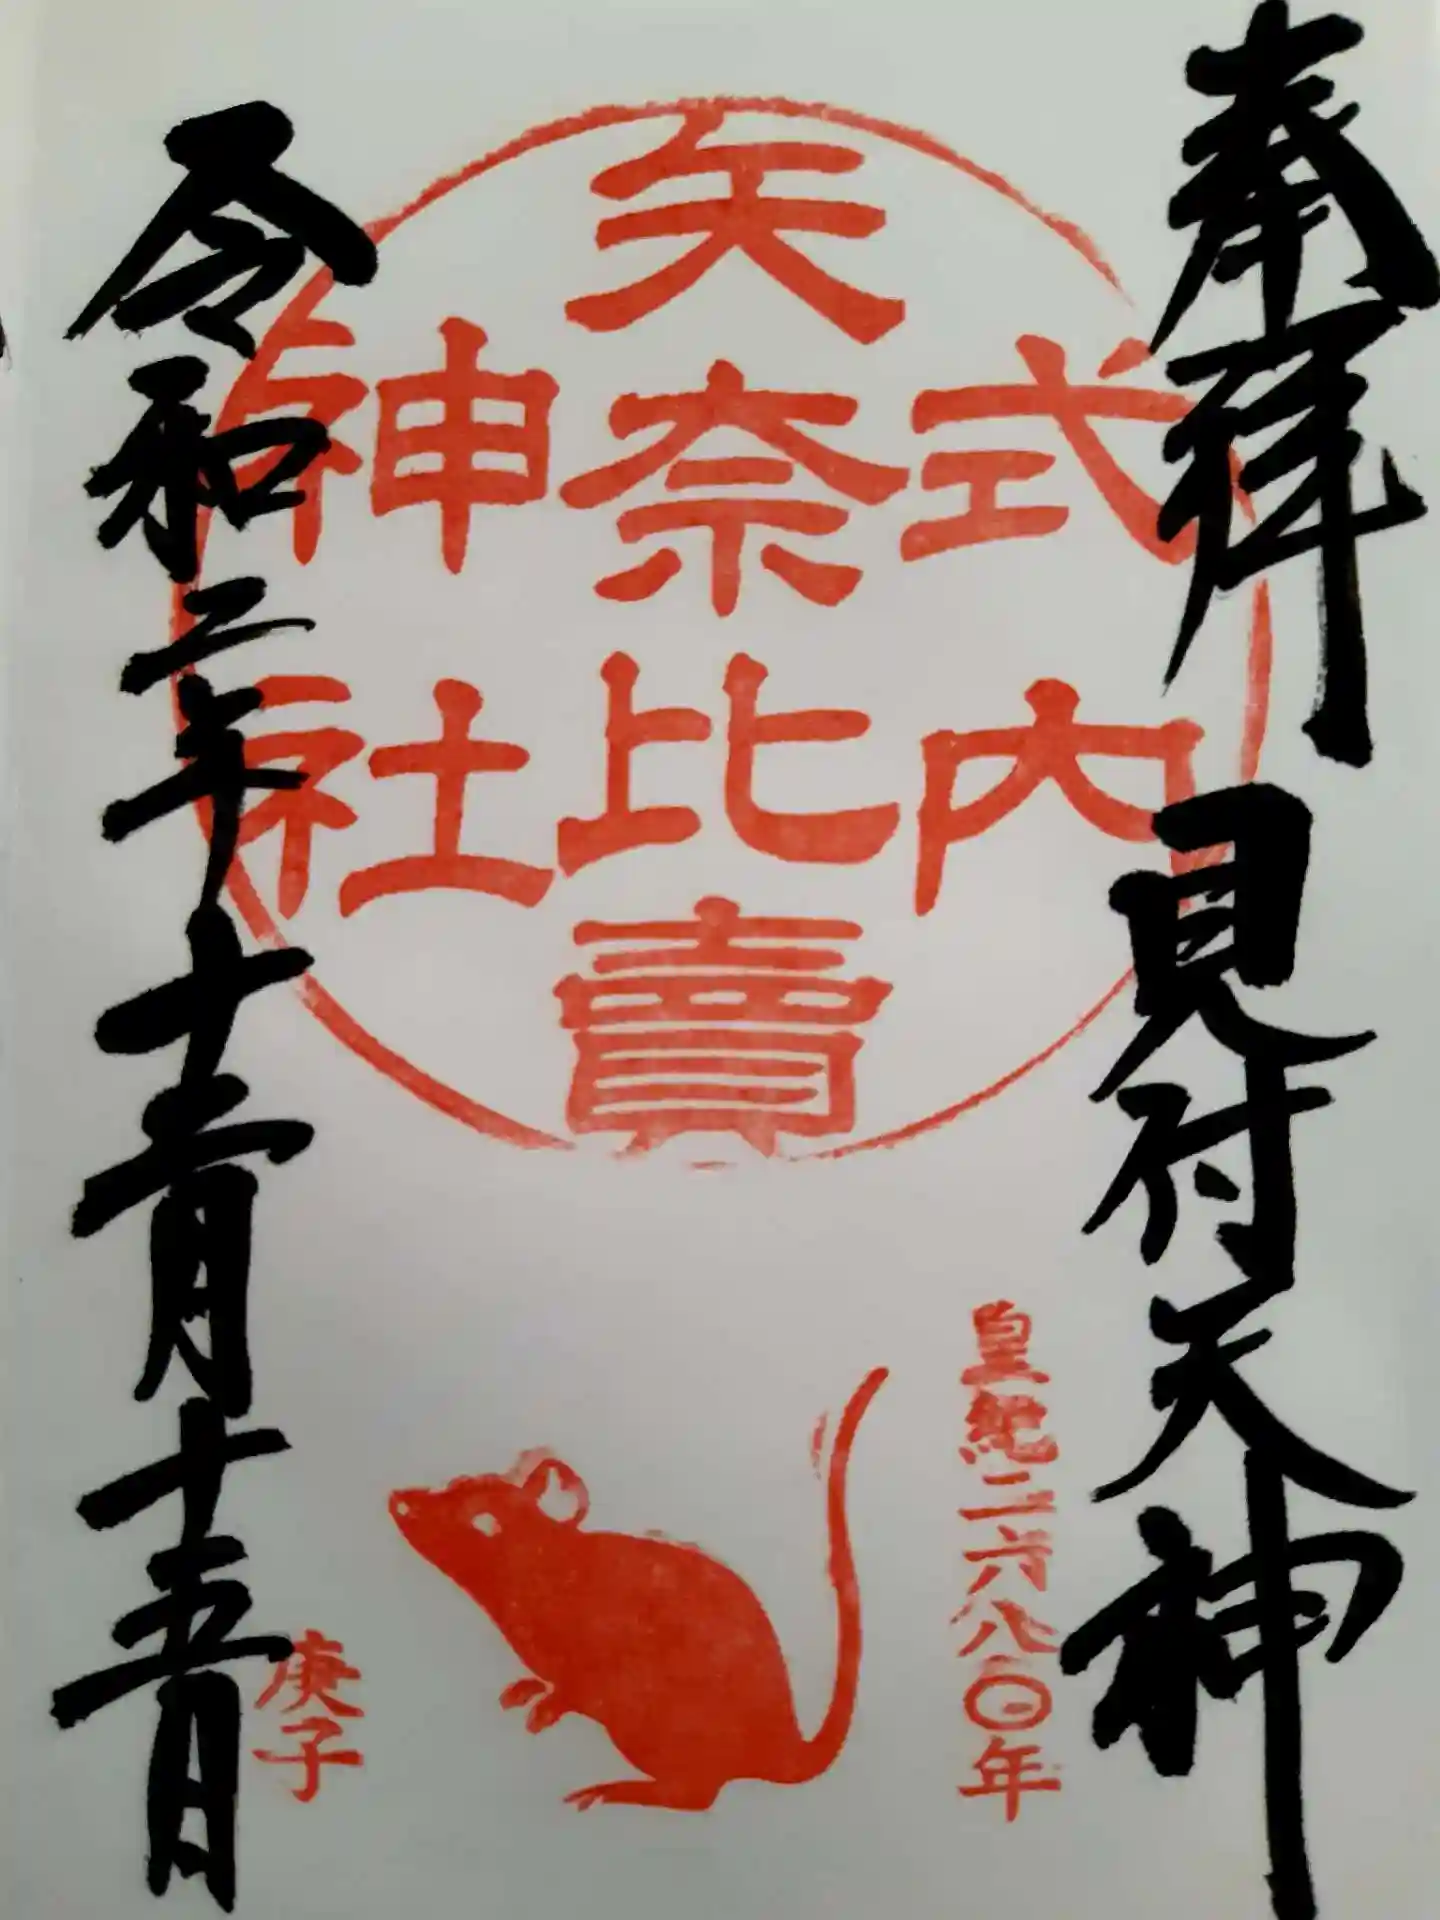 奉拝 見付天神
式内
矢奈比賣
神社
皇紀二六八〇年
庚子
令和二年十二月十五日